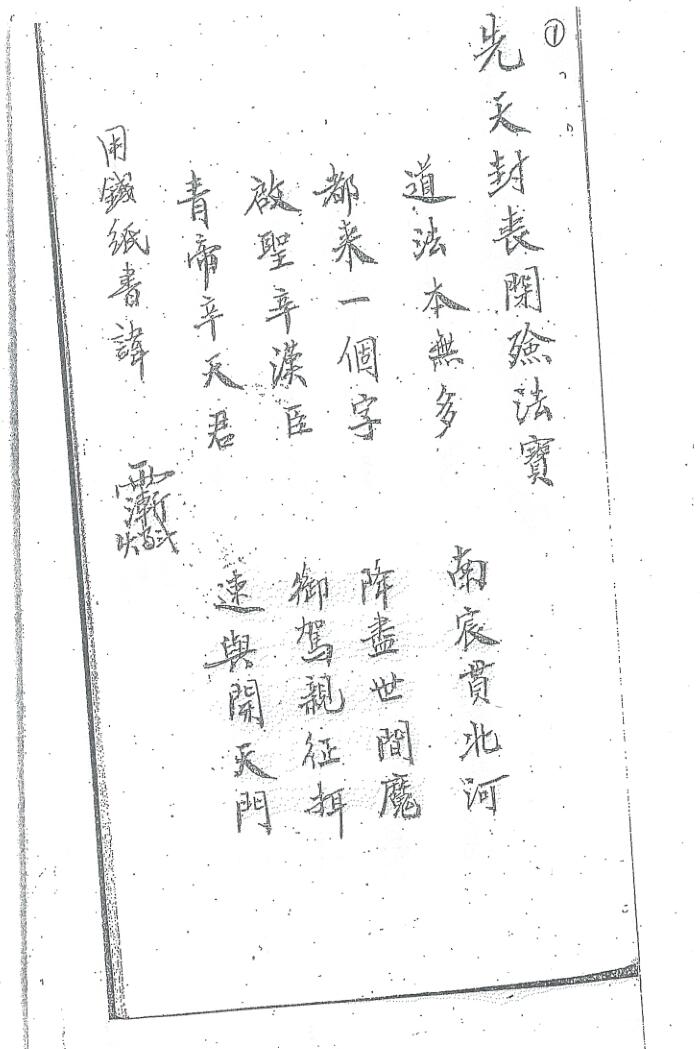 ①
先天封丧閉殮法寶
道法本無多 南宸貫北河
都来一個字 降盡世間魔
啟聖辛漢臣 御駕親征拜
青帝辛天君 速與開天門
用錢紙書諱